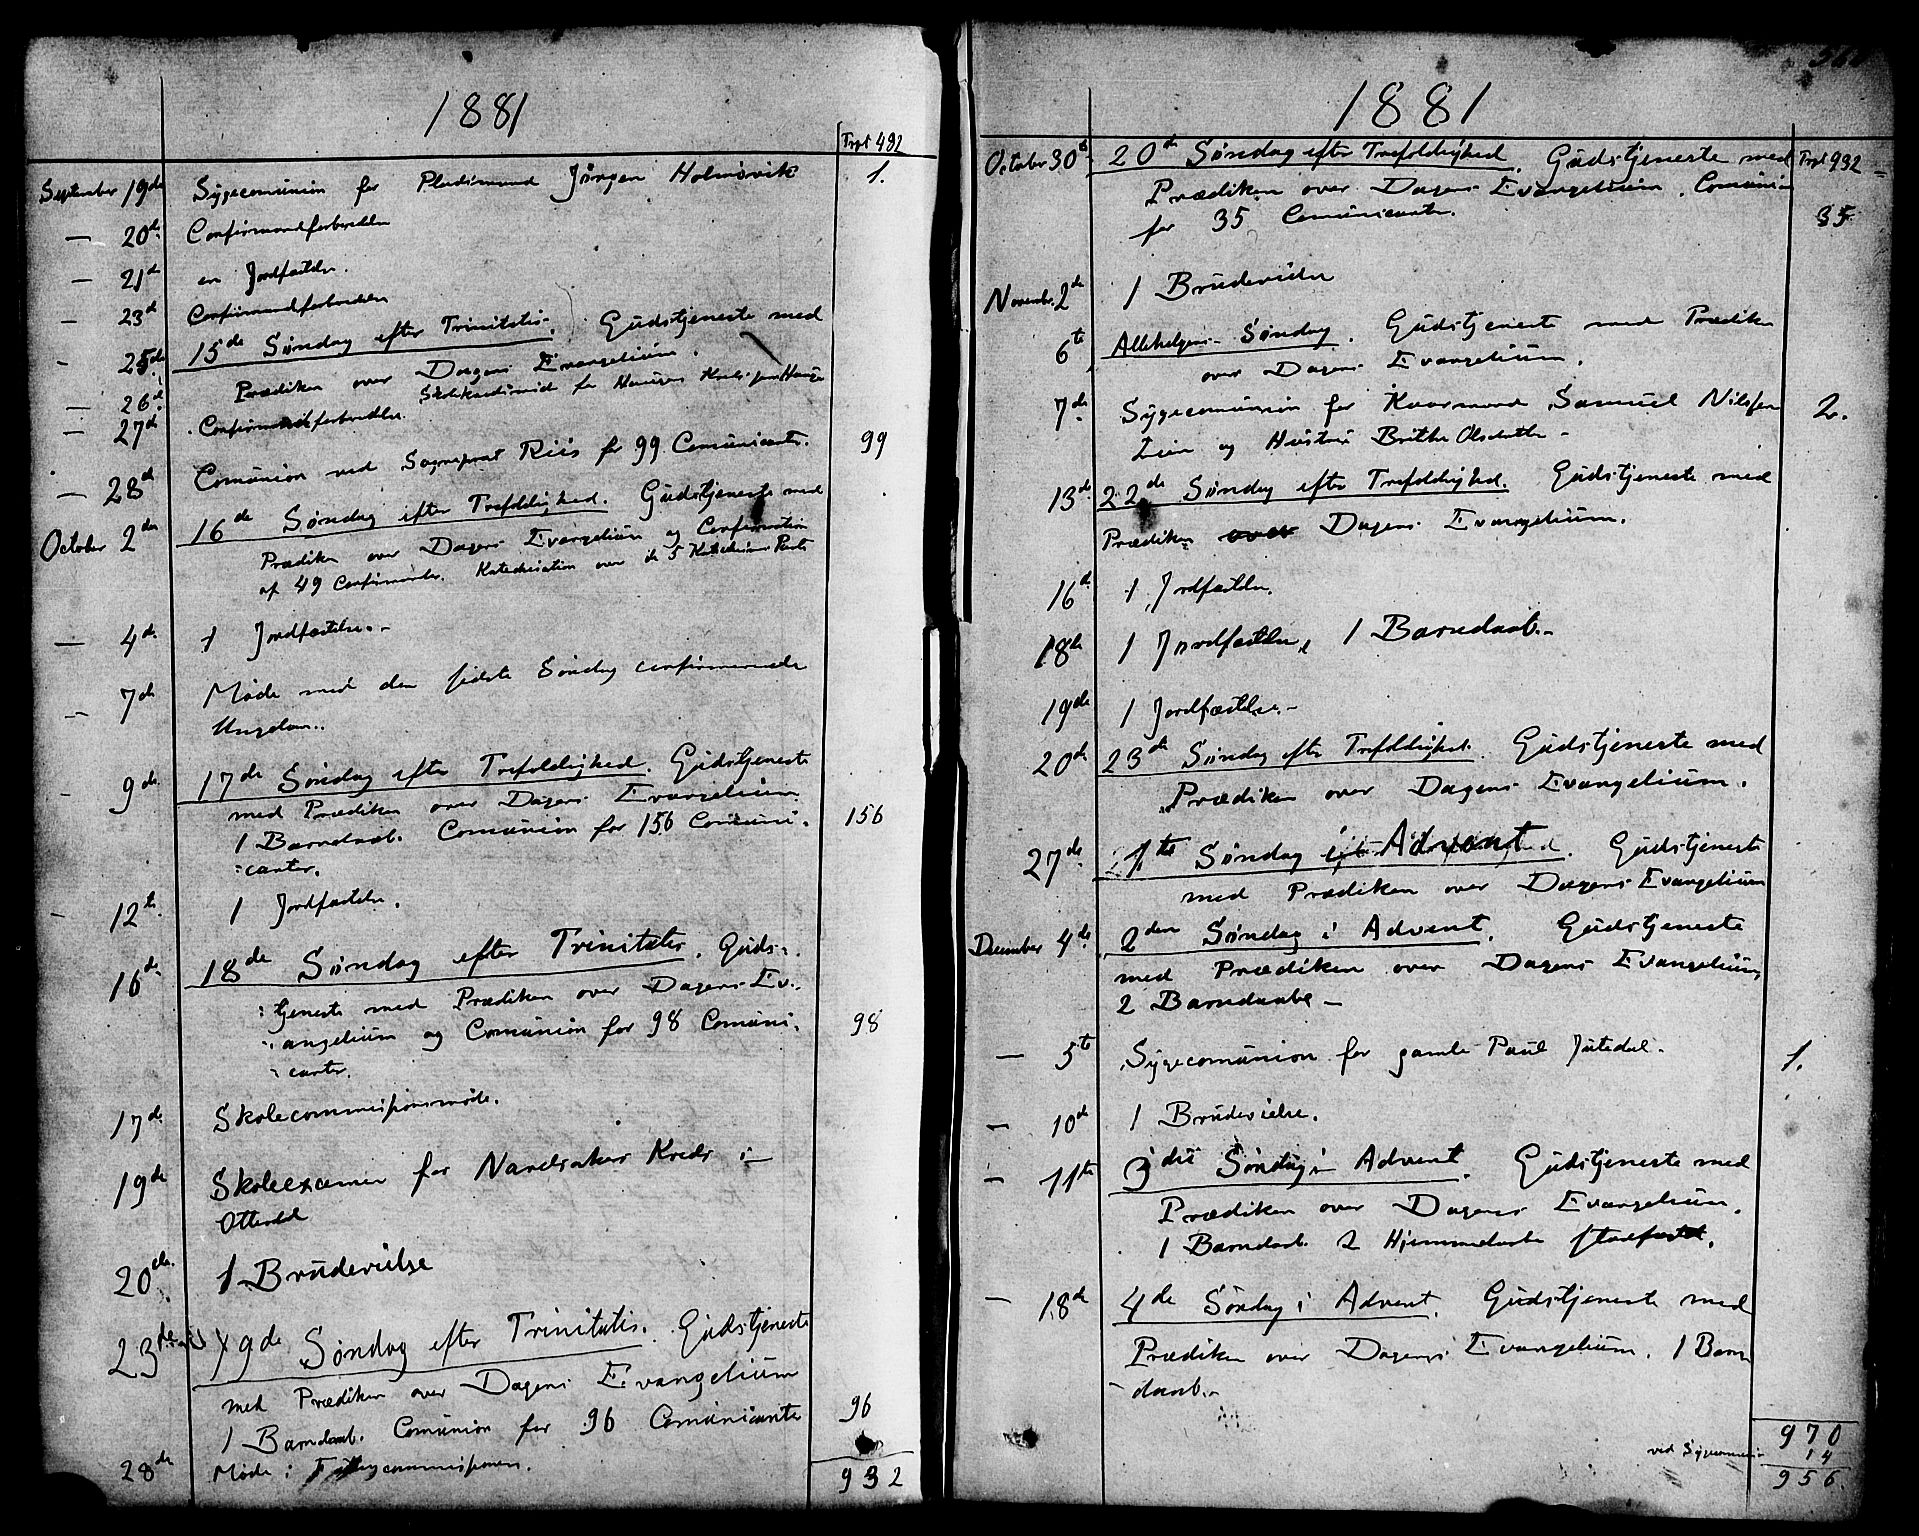 1881
Trpt 482
September 19de Sygecomunion for Pladsmand Jørgen Holmøvik 1.
— 20de Confirmandforberedelse
— 21de en Jordfæstelse.
— 23de Confirmandforberedelse
— 25de 15de Søndag efter Trinitatis. Gudstjeneste med
Prædiken over Dagens Evangelium.
— 26de Skolekandidat for
— 27de Confirmandforberedelse.
— 28de Comunion ved Sogneprest Riis for 99 Comunicanter. 99
October 2den 16de Søndag efter Trefoldighed. Gudstjeneste med
Prædiken over Dagens Evangelium og Confirmation
af 49 Confirmanter. Katechisation over de 5 Katechismus Parter
— 4de 1 Jordfæstelse.-
— 7de Møde med den sidste Søndag confirmerede
Ungdom.
— 9de 17de Søndag efter Trefoldighed. Gudstjeneste
med Prædiken over Dagens Evangelium
1 Barnedaab. Comunion for 156 Comuni- 156
:canter.
— 12te 1 Jordfæstelse.
16de 18de Søndag efter Trinitatis. Guds-
:tjeneste med Prædiken over Dagens Ev-
:angelium og Comunion for 98 Comuni- 98
:canter.
17de Skolecommissionsmøde.
19de Skoleexamen for Kreds i
20de 1 Brudevielse
23de 19de Søndag efter Trinitatis. Gudstjeneste
med Prædiken over Dagens Evangelium
1 Barnedaab. Comunion for 96 Comunicanter 96
28de Møde i Fattigcommissionen.
932
1881
October 30te 20de Søndag efter Trefoldighed. Gudstjeneste med Trpt 932
Prædiken over Dagens Evangelium. Comunion
for 35 Comunicanter. 35
Novembr. 2de 1 Brudevielse
6te Allehelgens- Søndag. Gudstjeneste med Prædiken
over Dagens Evangelium.
7de Sygecomunion for Kaarmand Samuel Nilssen 2.
Lien og Hustru Brithe Olsdatter -
13de 22de Søndag efter Trefoldighed. Gudstjeneste med
Prædiken over Dagens Evangelium.
16de 1 Jordfæstelse.
18de 1 Jordfæstelse, 1 Barnedaab.-
19de 1 Jordfæstelse.-
20de 23de Søndag efter Trefoldighed. Gudstjeneste med
Prædiken over Dagens Evangelium.
27de 1ste Søndag i Advent. Gudstjeneste
med Prædiken over Dagens Evangelium
December 4de 2den Søndag i Advent. Gudstjeneste
med Prædiken over Dagens Evangelium,
2 Barnedaabe -
— 5te Sygecomunion for gamle Paul Jutedal. 1.
— 10de 1 Brudevielse.
— 11te 3die Søndag i Advent. Gudstjeneste med
Prædiken over Dagens Evangelium.
1 Barnedaab. 2 Hjemmedøbte stadfæstet.
— 18de 4de Søndag i Advent. Gudstjeneste med
Prædiken over Dagens Evangelium. 1 Barne
-daab.-
970
ved Sygecomunion 14
956.